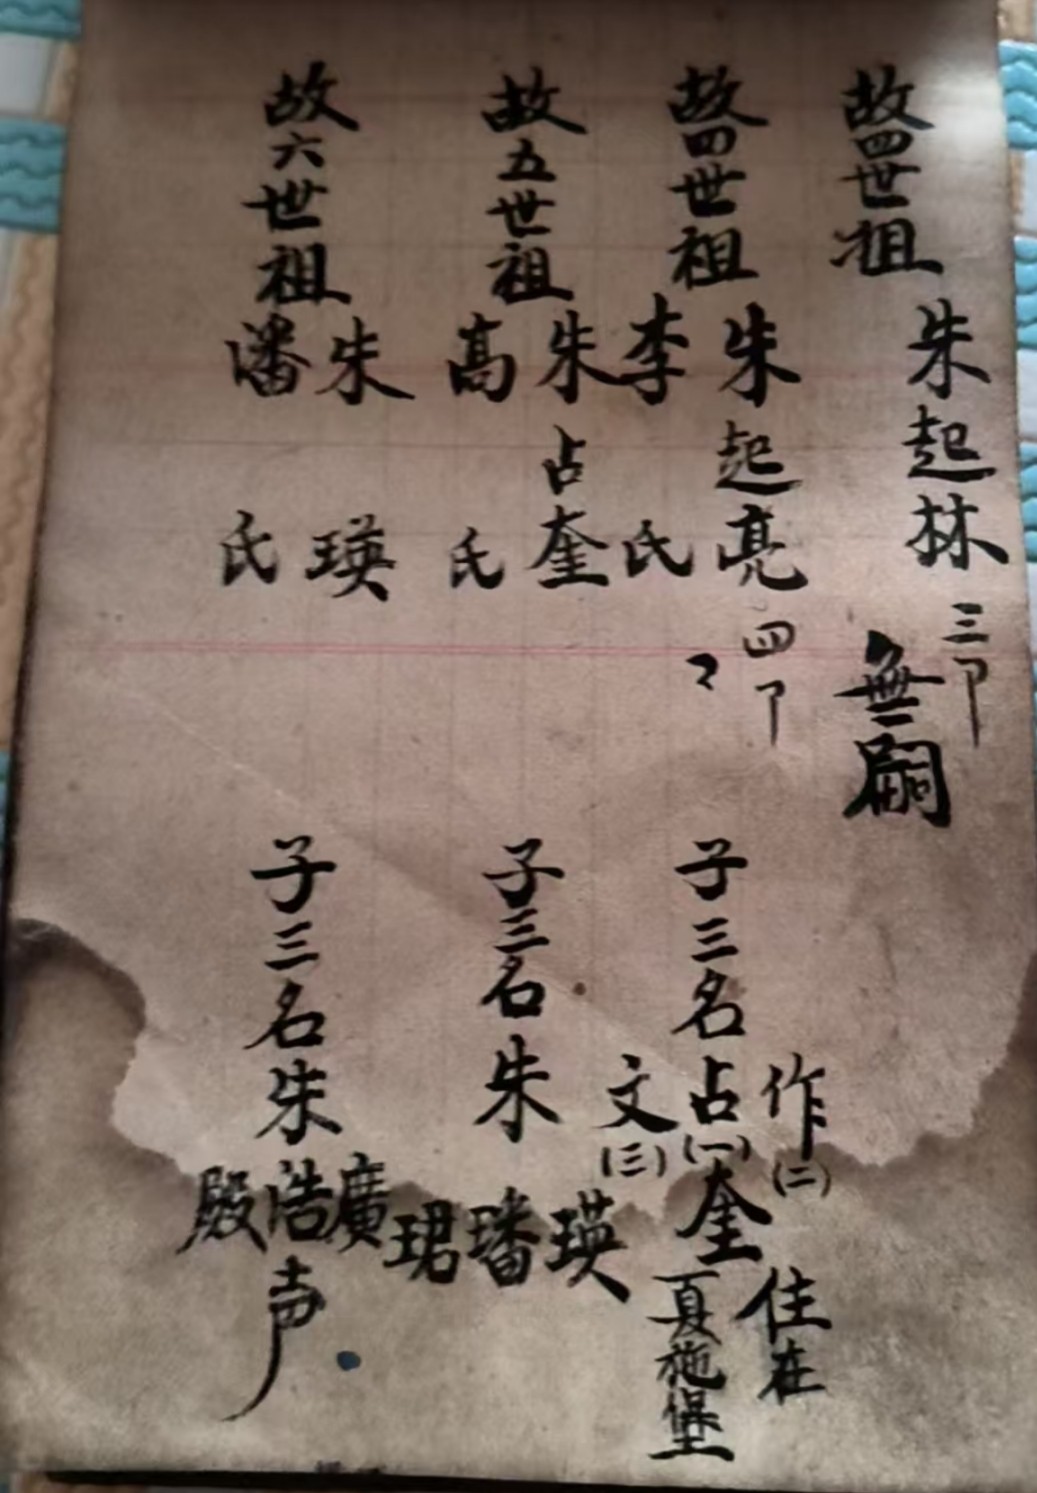 故四世祖朱起林三卩
無嗣
故四世祖朱起亮四卩
李氏
子三名占奎(一)
作(二)
文(三)
住在
夏施堡
故五世祖朱占奎
高氏
子三名朱
瑛
璠
珺
故六世祖朱瑛
潘氏
子三名朱
廣
浩
殿
声